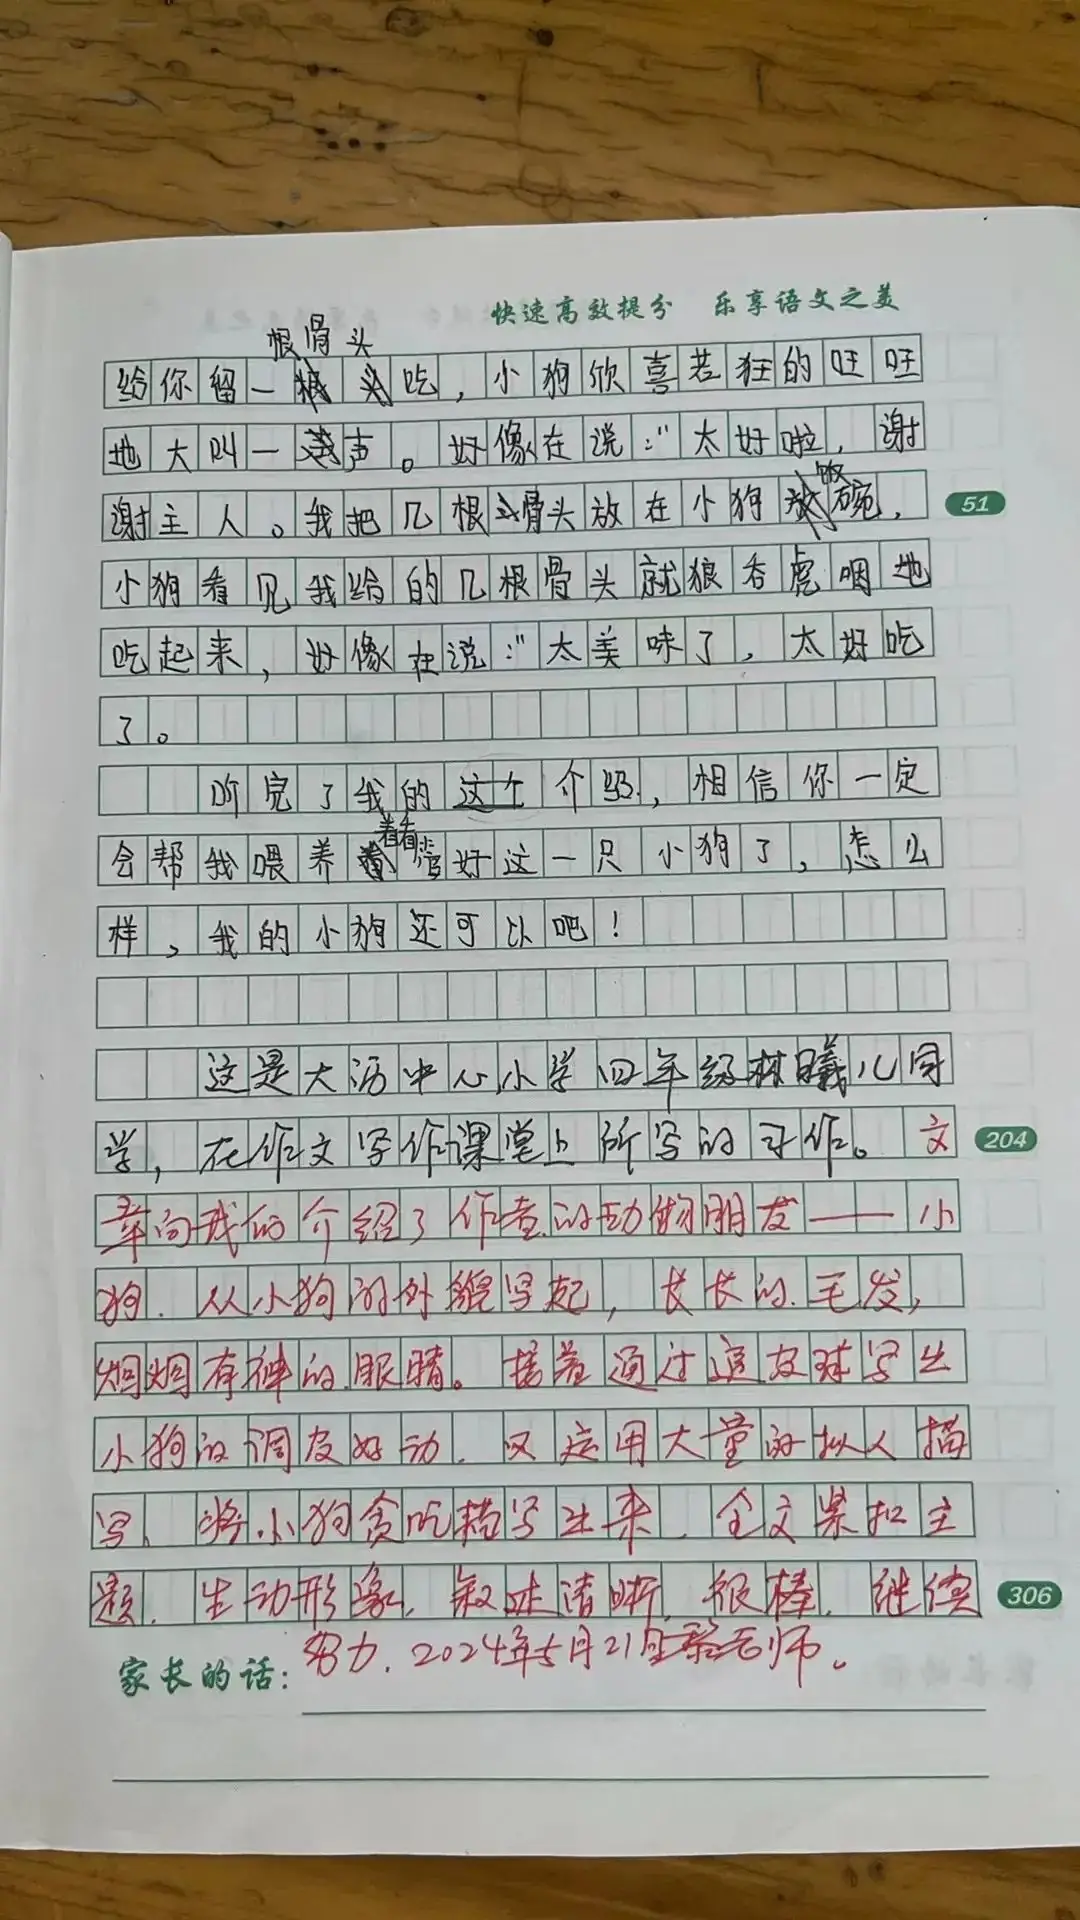 快速高效提分 乐享语文之美
根骨头
给你留一吃，小狗欣喜若狂的旺旺
地大叫一声。好像在说：“太好啦，谢
饭
谢主人。我把几根骨头放在小狗碗，
51
小狗看见我给的几根骨头就狼吞虎咽地
吃起来，好像在说：“太美味了，太好吃
了。
听完了我的这个介绍，相信你一定
看看
会帮我喂养好这一只小狗了，怎么
样，我的小狗还可以吧！
这是大沥中心小学四年级林曦儿同
学，在作文写作课堂上所写的习作。文
204
章向我们介绍了作者的动物朋友——小
狗．从小狗的外貌写起，长长的毛发，
炯炯有神的眼睛。接着通过追皮球写出
小狗的调皮好动．又运用大量的拟人描
写、将小狗贪吃描写出来．全文紧扣主
题．生动形象．叙述清晰．很棒．继续
306
努力．2024年5月21日黎老师。
家长的话：